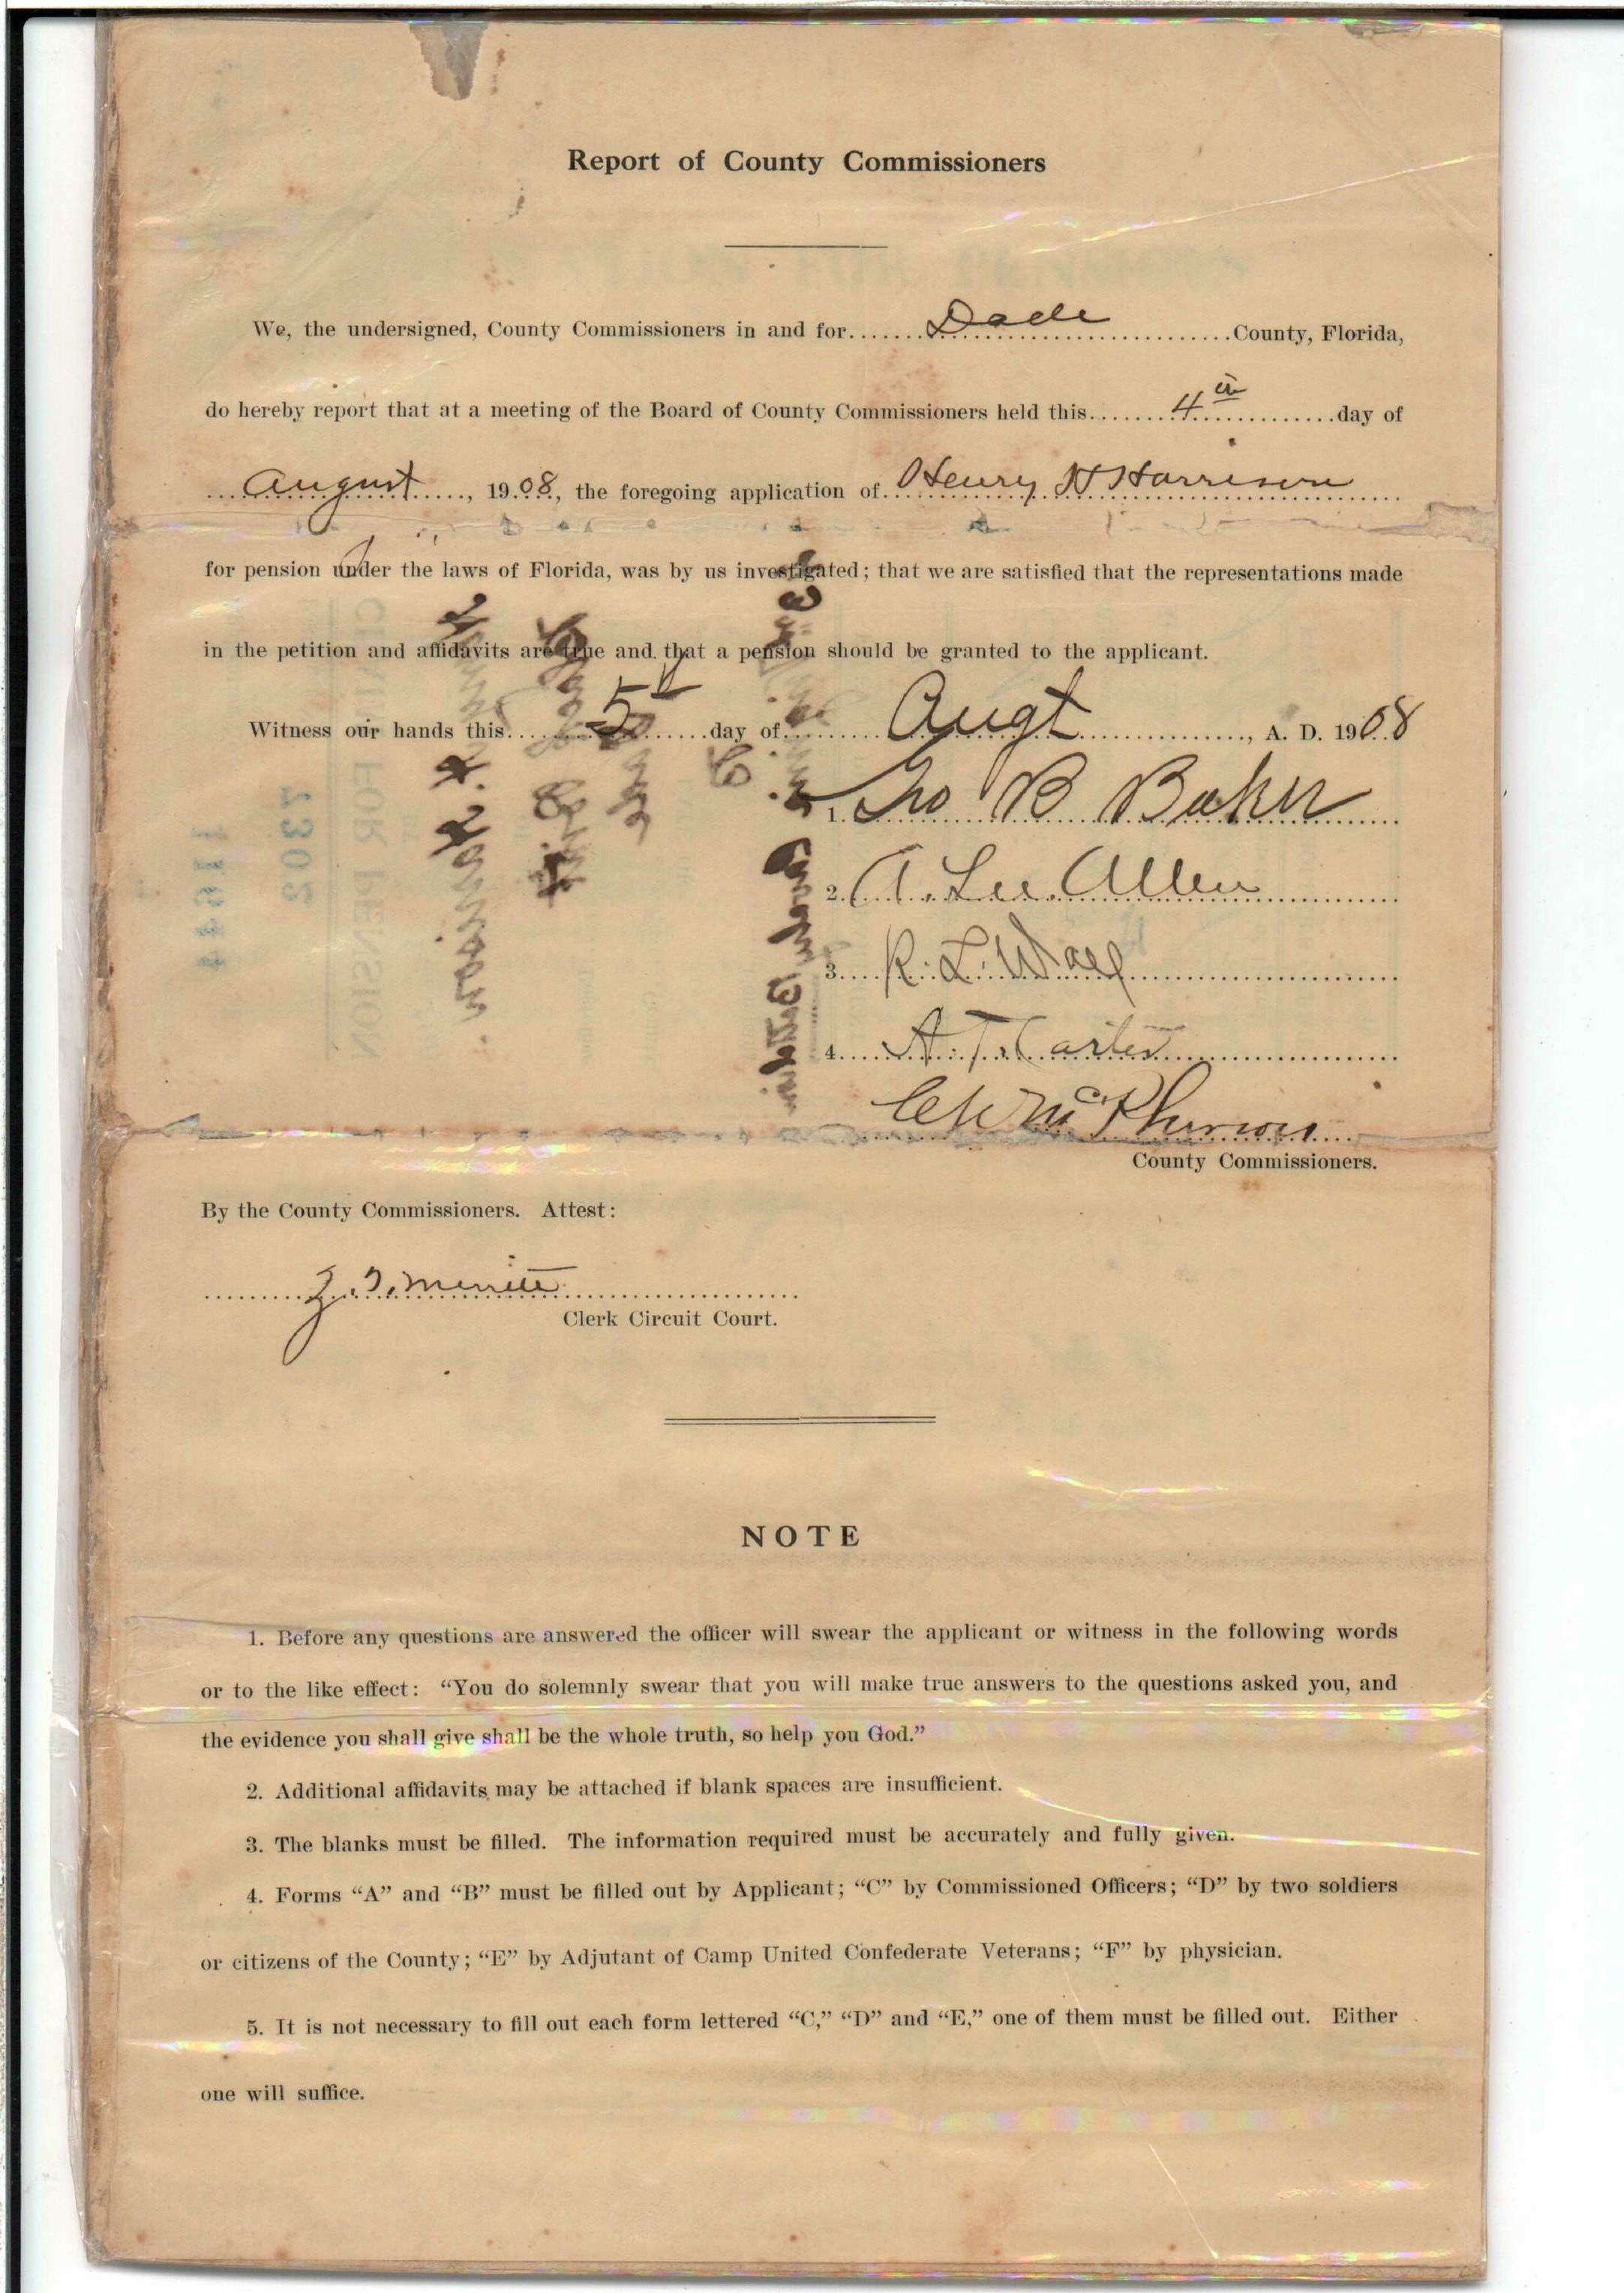 Report of County Commissioners
We, the undersigned, County Commissioners in and for Dade County, Florida,
do hereby report that at a meeting of the Board of County Commissioners held this 4th day of
August, 1908, the foregoing application of Henry H Harrison
for pension under the laws of Florida, was by us investigated; that we are satisfied that the representations made
in the petition and affidavits are true and that a pension should be granted to the applicant.
Witness our hands this 5th day of Augt, A. D. 1908
1. Jno B Baker
2. A. Lee Allen
3. R. L.
4. A. T. Carter
McPherson
County Commissioners.
By the County Commissioners. Attest:
Z. T. Merritt
Clerk Circuit Court.
NOTE
1. Before any questions are answered the officer will swear the applicant or witness in the following words
or to the like effect: “You do solemnly swear that you will make true answers to the questions asked you, and
the evidence you shall give shall be the whole truth, so help you God.”
2. Additional affidavits may be attached if blank spaces are insufficient.
3. The blanks must be filled. The information required must be accurately and fully given.
4. Forms “A” and “B” must be filled out by Applicant; “C” by Commissioned Officers; “D” by two soldiers
or citizens of the County; “E” by Adjutant of Camp United Confederate Veterans; “F” by physician.
5. It is not necessary to fill out each form lettered “C,” “D” and “E,” one of them must be filled out. Either
one will suffice.